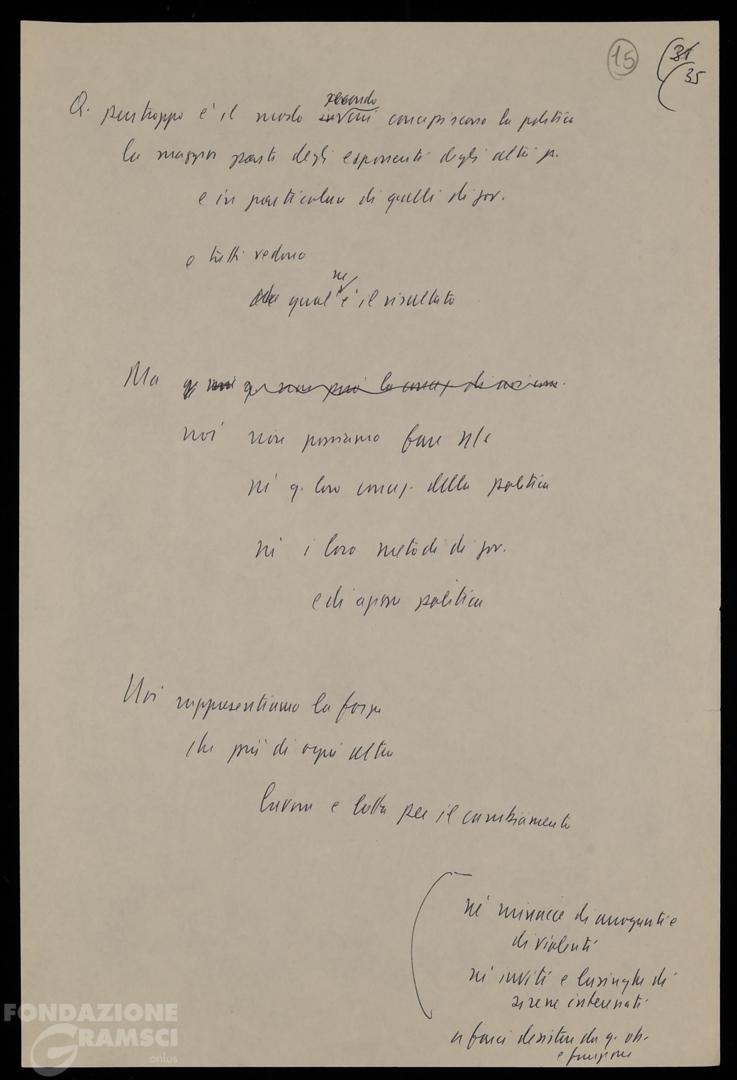 15
31
35
secondo
Q. purtroppo è il modo cui concepiscono la politica
la maggior parte degli esponenti degli altri p.
e in particolare di quelli di gov.
e tutti vedono
ne
qual è il risultato
Ma
noi non possiamo fare ns/e
né q. loro concez. della politica
né i loro metodi di gov.
e di azione politica
Noi rappresentiamo la forza
che più di ogni altra
lavora e lotta per il cambiamento
né minacce di arroganti e
di violenti
né inviti e lusinghe di
sirene interessati
a farci desistere da q. ob.
e funzione
FONDAZIONE
GRAMSCI
onlus